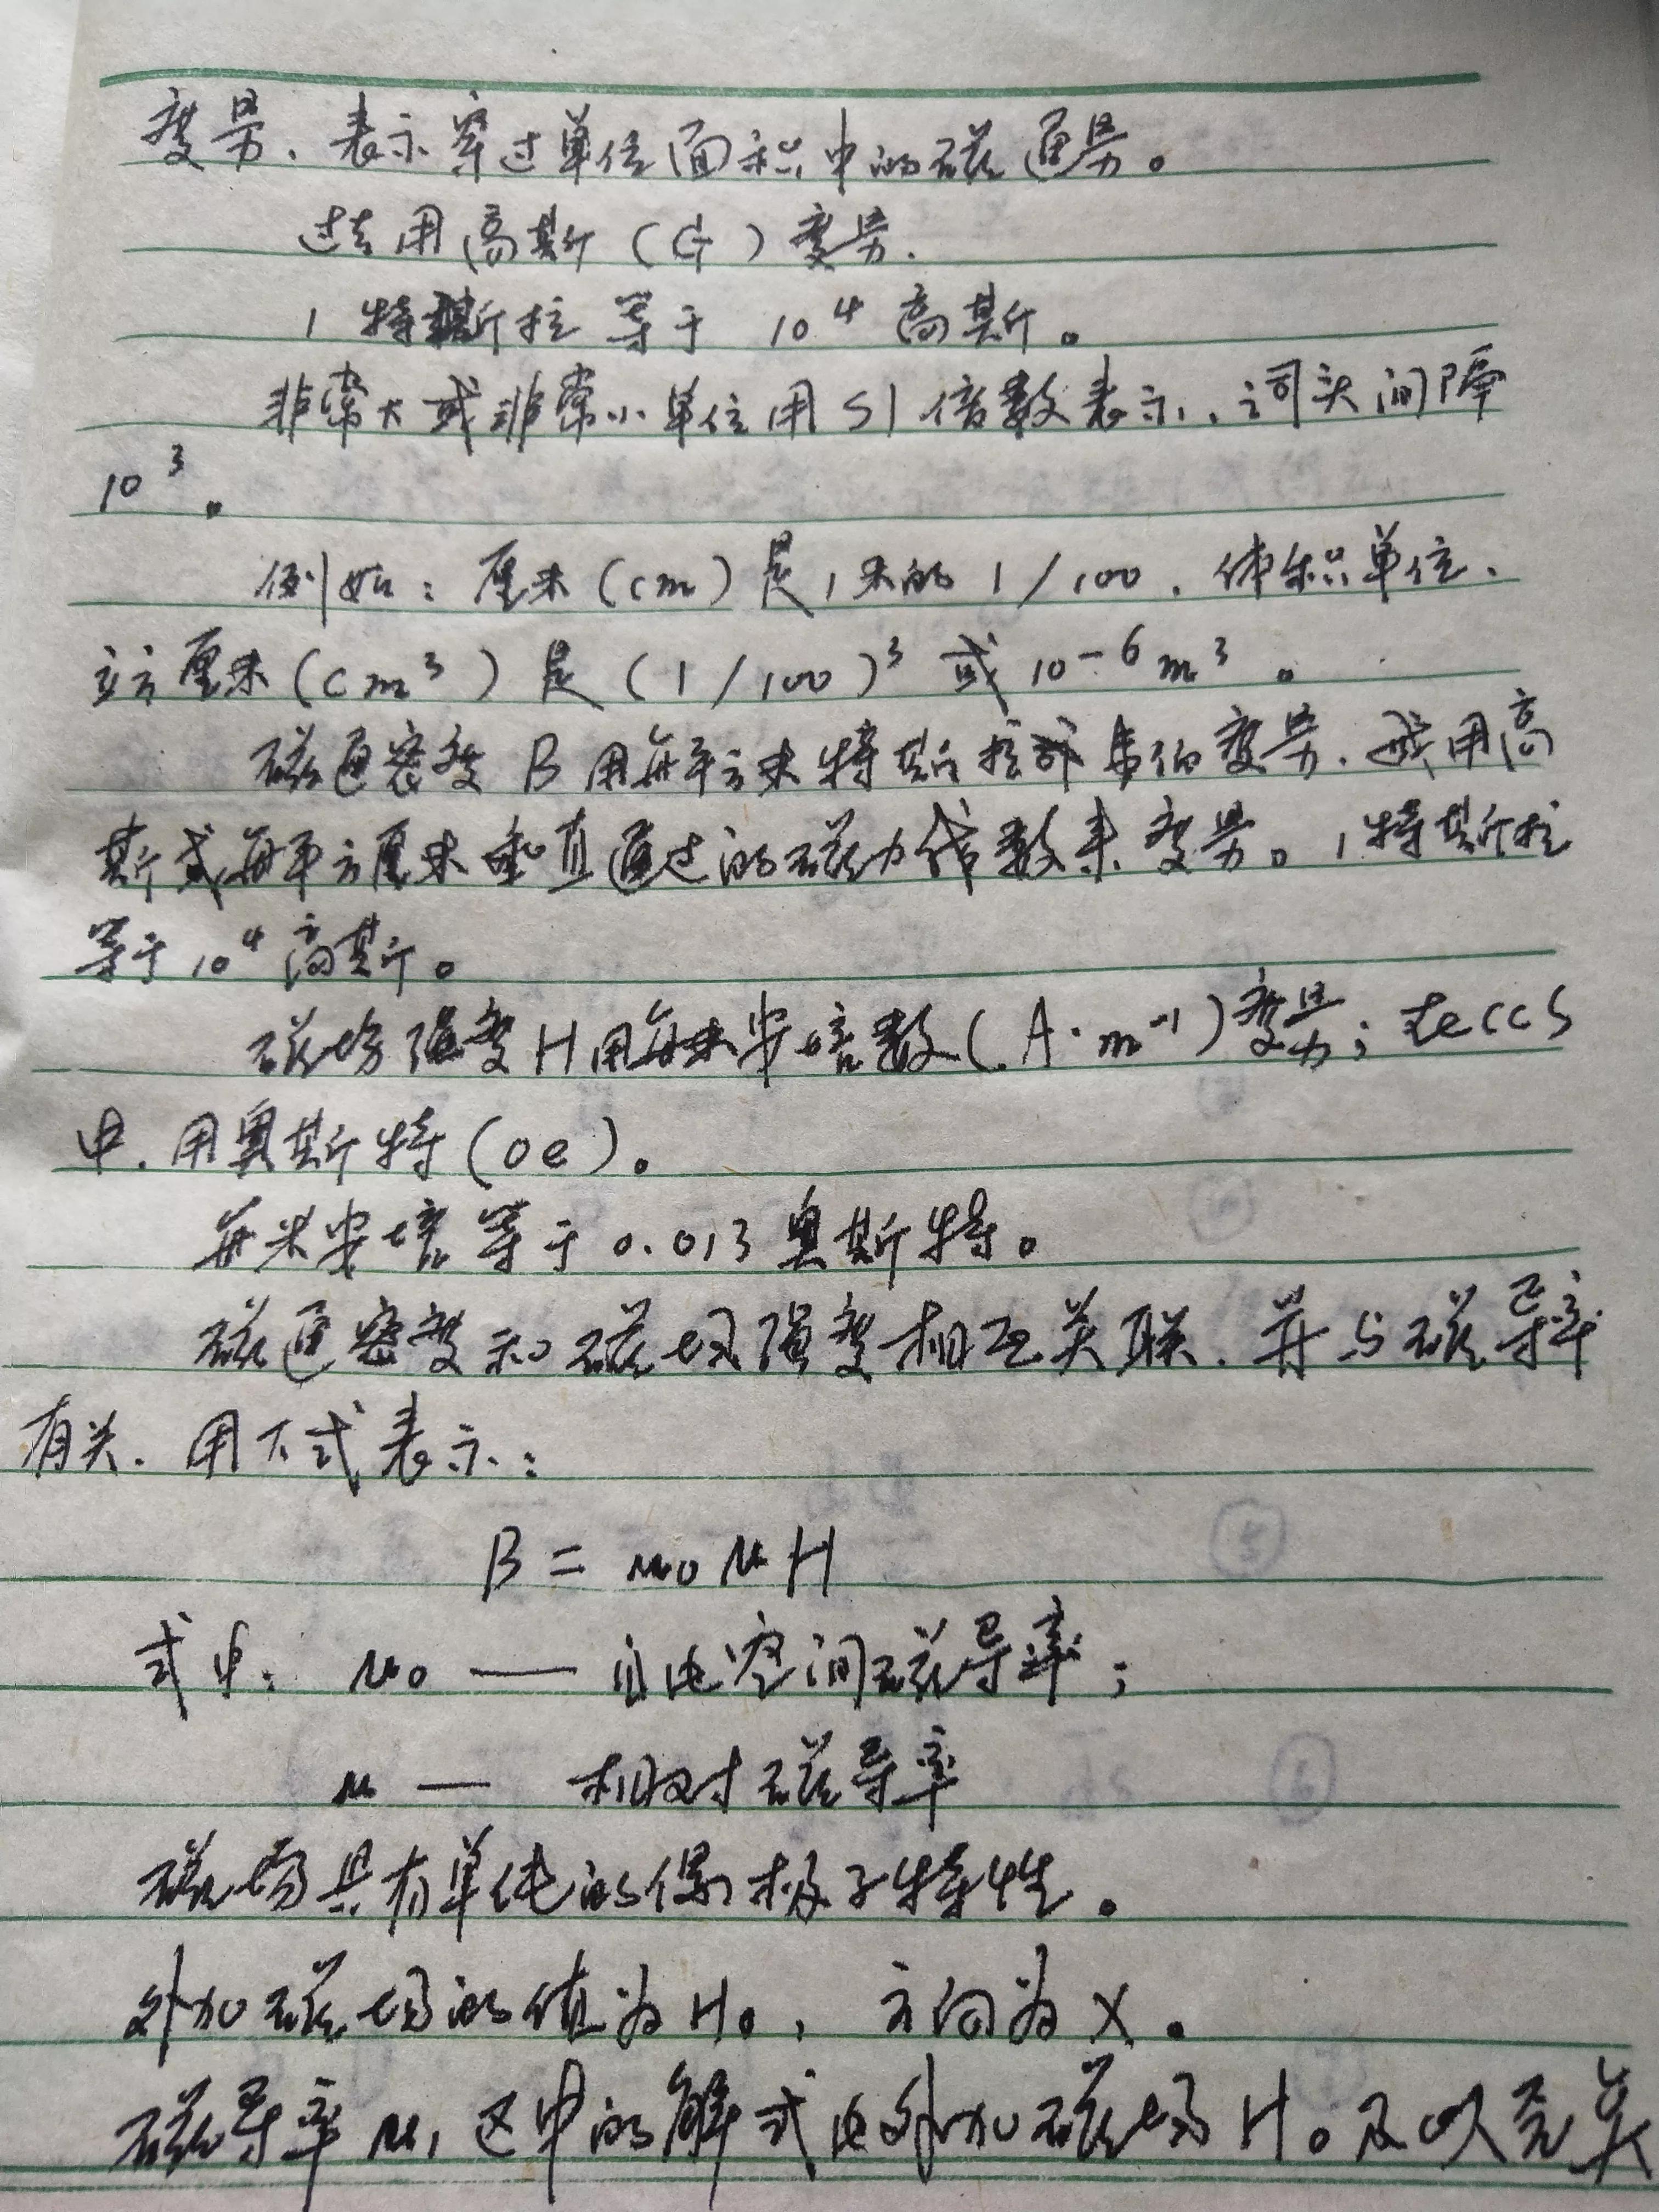 度量、表示穿过单位面积中的磁通量。
过去用高斯（G）度量.
1 特斯拉 等于 10⁴ 高斯。
非常大或非常小单位用SI倍数表示、词头间隔
10³。
例如：厘米（cm）是1米的1/100、体积单位、
立方厘米（cm³）是（1/100）³ 或 10-6m³。
磁通密度 B 用每平方米特斯拉或韦伯度量、或用高
斯或每平方厘米垂直通过的磁力线数来度量。1特斯拉
等于10⁴高斯。
磁场强度H用每米安培数（A·m⁻¹）度量；在CCS
中、用奥斯特（oe）。
每米安培等于0.013奥斯特。
磁通密度和磁场强度相互关联、并与磁导率
有关、用下式表示：
B = μ0 μ H
式中：μ0 —— 自由空间磁导率；
μ — 相对磁导率
磁场具有单纯的偶极子特性。
外加磁场的值为H0，方向为X。
磁导率 μ，区中的解式由外加磁场H0及以